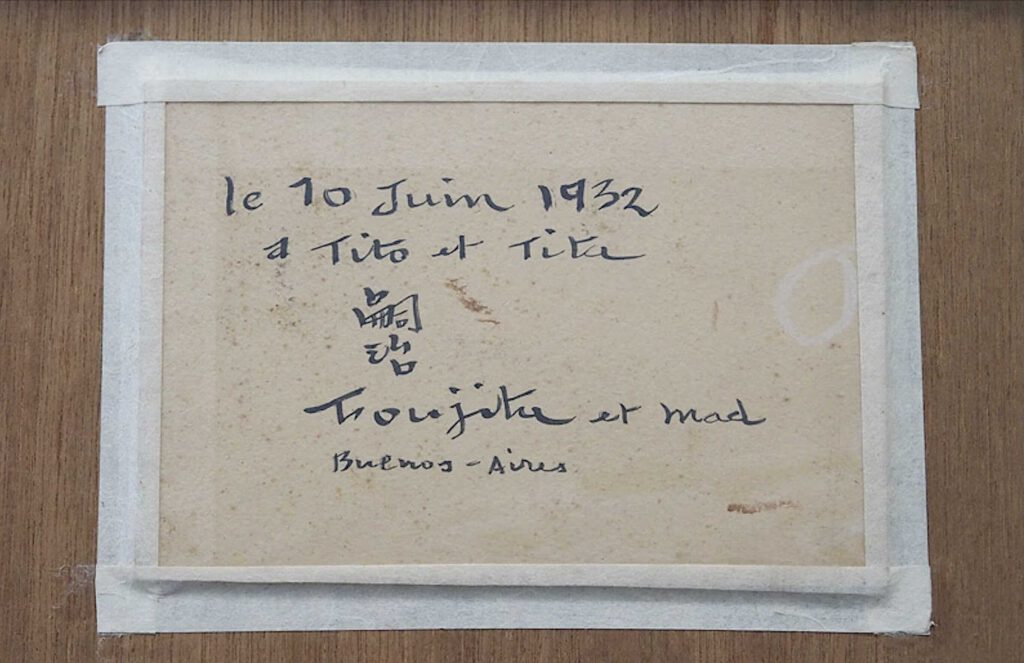 le 10 Juin 1932
a Tito et Tita
嗣
治
Foujita et Mad
Buenos-Aires